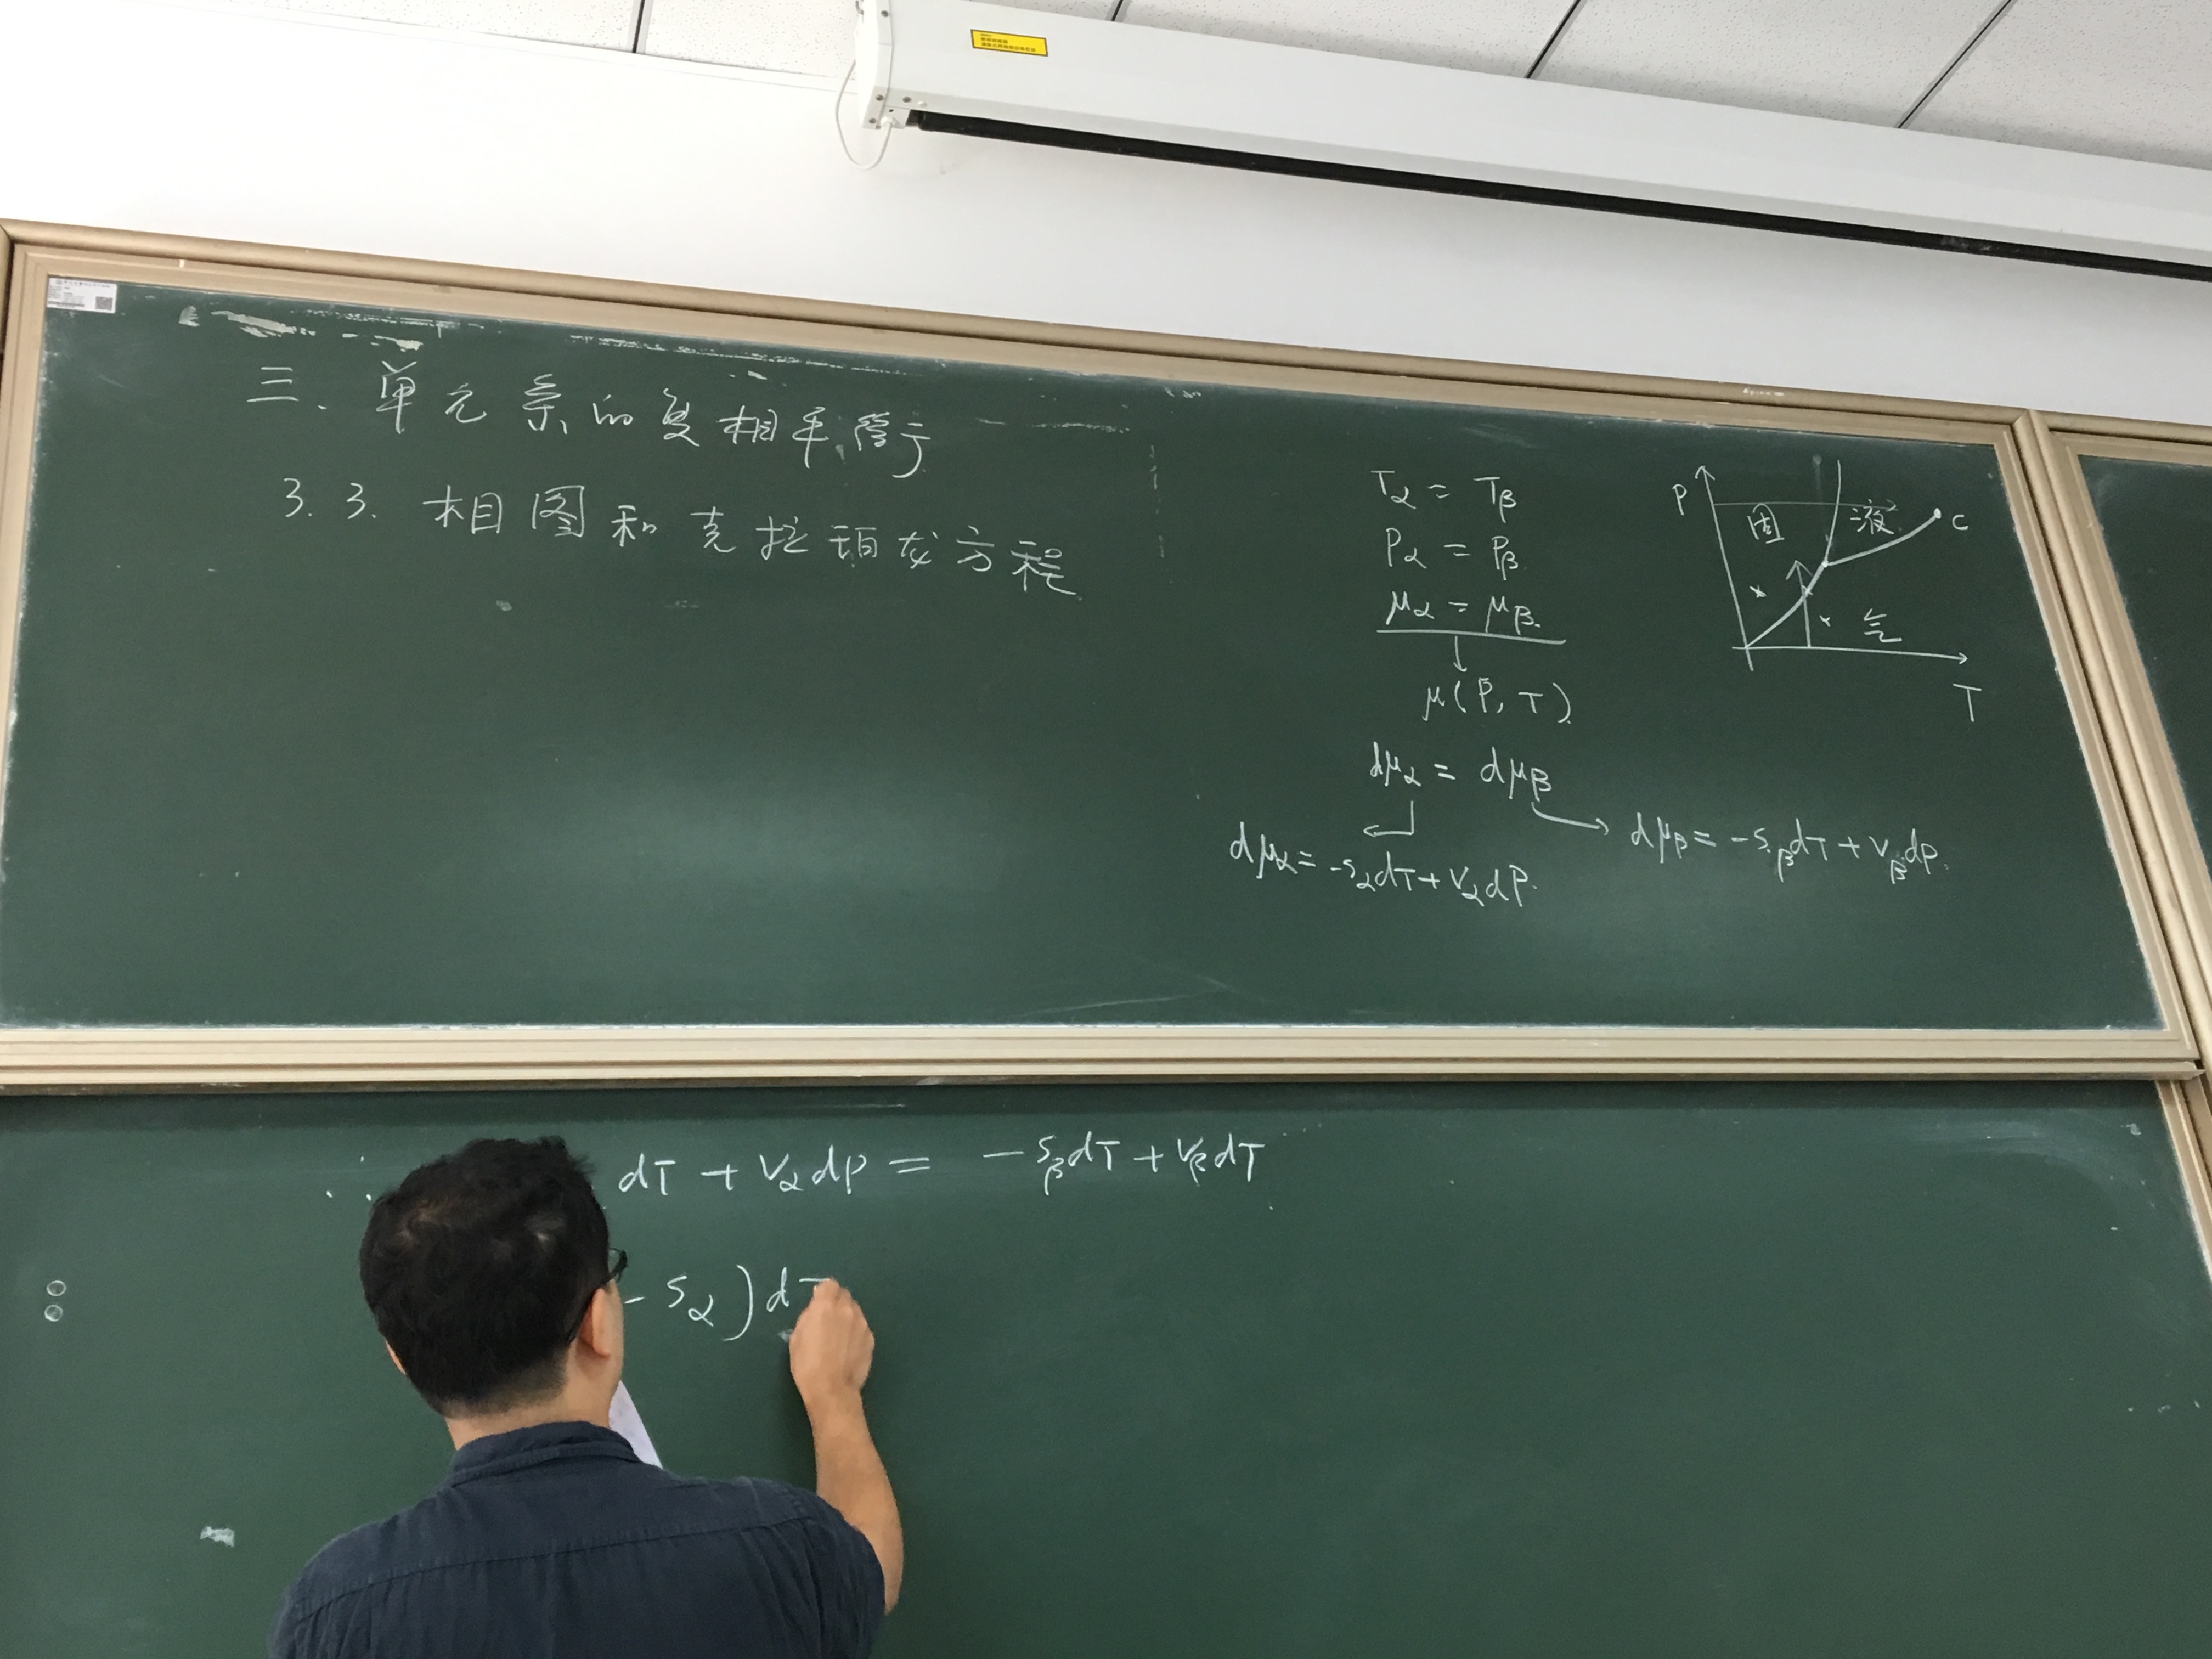 三. 单元系的复相平衡
3.3. 相图和克拉珀龙方程
Tα = Tβ
Pα = Pβ
μα = μβ
μ(P, T)
dμα = dμβ
dμα = -sαdT + vαdP.
dμβ = -sβdT + vβdp.
P
固
液
C
气
T
∴ dT + vαdp = -sβdT + vβdT
- sα) dT